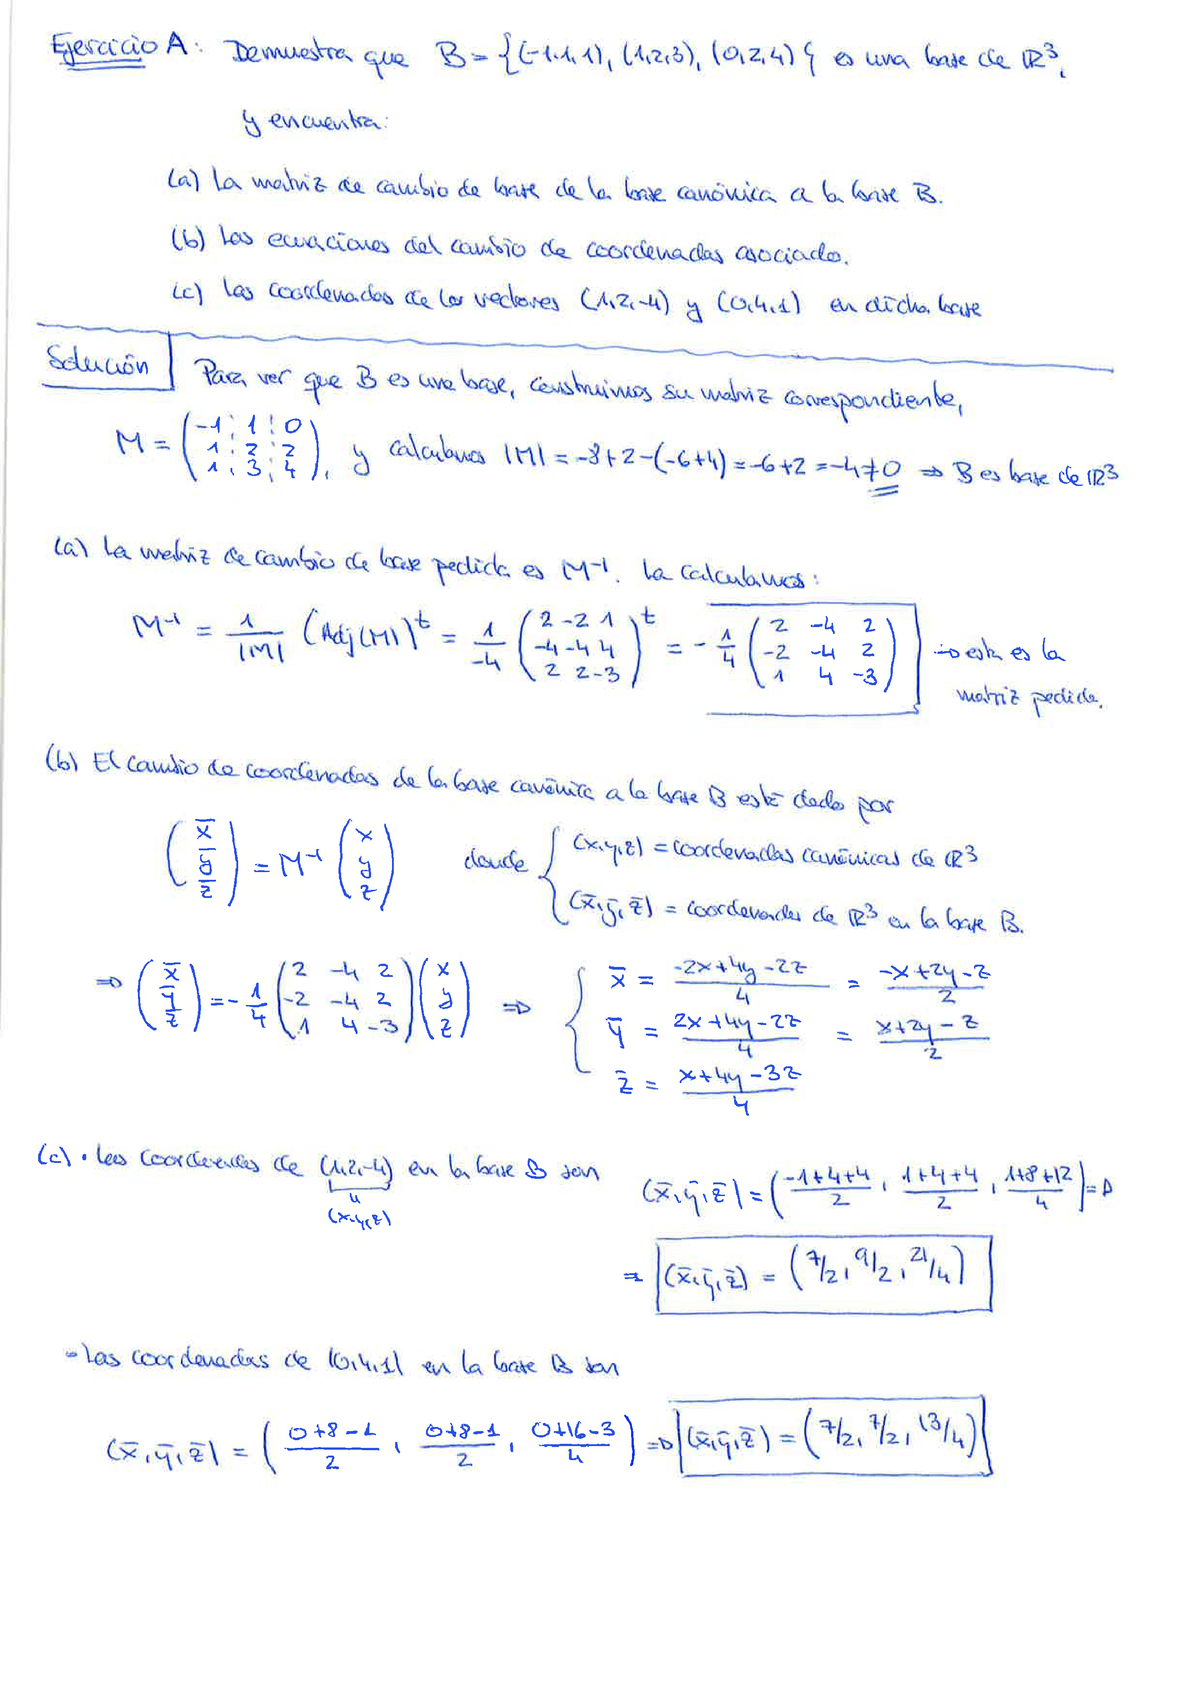 Ejercicio A: Demuestra que B = {(-1,1,1), (1,2,3), (0,2,4)} es una base de ℝ³,
y encuentra:
(a) La matriz de cambio de base de la base canónica a la base B.
(b) Las ecuaciones del cambio de coordenadas asociado.
(c) Las coordenadas de los vectores (1,2,-4) y (0,4,1) en dicha base
Solución | Para ver que B es una base, construimos su matriz correspondiente,
M = ( -1 1 0 ; 1 2 2 ; 1 3 4 ), y calculamos |M| = -8+2-(-6+4) = -6+2 = -4 ≠ 0 ⇒ B es base de ℝ³
(a) La matriz de cambio de base pedida es M⁻¹. La calculamos:
M⁻¹ = 1/|M| (Adj(M))ᵗ = 1/-4 ( 2 -2 1 ; -4 -4 4 ; 2 2 -3 )ᵗ = - 1/4 ( 2 -4 2 ; -2 -4 2 ; 1 4 -3 ) → esta es la
matriz pedida.
(b) El cambio de coordenadas de la base canónica a la base B está dado por
( x̄ ; ȳ ; z̄ ) = M⁻¹ ( x ; y ; z ) donde { (x,y,z) = coordenadas canónicas de ℝ³
(x̄,ȳ,z̄) = coordenadas de ℝ³ en la base B.
⇒ ( x̄ ; ȳ ; z̄ ) = - 1/4 ( 2 -4 2 ; -2 -4 2 ; 1 4 -3 ) ( x ; y ; z ) ⇒ { x̄ = (-2x+4y-2z)/4 = (-x+2y-z)/2
ȳ = (2x+4y-2z)/4 = (x+2y-z)/2
z̄ = (x+4y-3z)/4
(c) • Las coordenadas de (1,2,-4) en la base B son (x̄,ȳ,z̄) = ( (-1+4+4)/2 , (1+4+4)/2 , (1+8+12)/4 ) ⇒
"
(x,y,z)
⇒ (x̄,ȳ,z̄) = (7/2, 9/2, 21/4)
• Las coordenadas de (0,4,1) en la base B son
(x̄,ȳ,z̄) = ( (0+8-1)/2 , (0+8-1)/2 , (0+16-3)/4 ) ⇒ (x̄,ȳ,z̄) = (7/2, 7/2, 13/4)